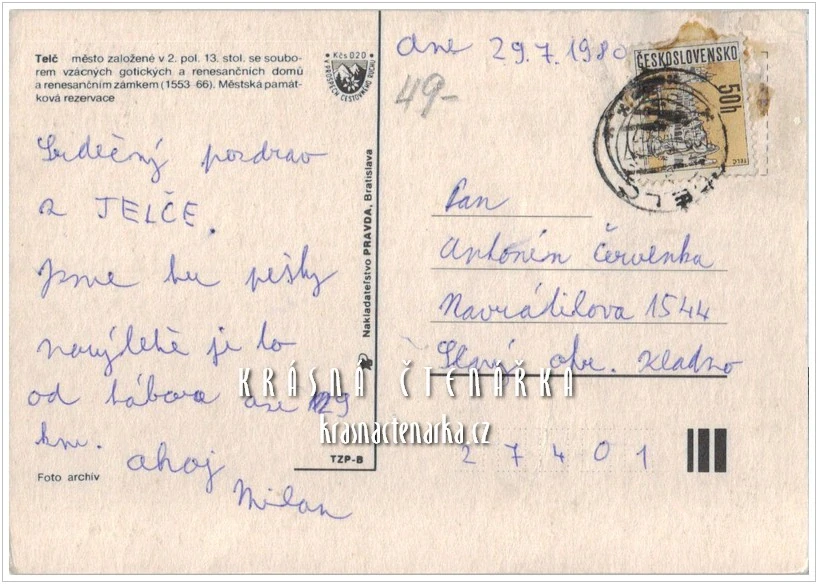 Telč město založené v 2. pol. 13. stol. se soubo-
rem vzácných gotických a renesančních domů
a renesančním zámkem (1553-66). Městská památ-
ková rezervace
• Kčs 0,20 •
V PROSPĚCH CESTOVNÉHO RUCHU
Srdečný pozdrav
z TELČE.
Jsme tu pěšky
navýletě je to
od tábora asi 29
km. ahoj
Milan
Foto archiv
TZP-B
Nakladateľstvo PRAVDA, Bratislava
dne 29.7.1980
49-
ČESKOSLOVENSKO
50h
TELČ
Pan
Antoním Červenka
Navrátilova 1544
Slaný okr. Kladno
27401
KRÁSNÁ ČTENÁŘKA
krasnactenarka.cz